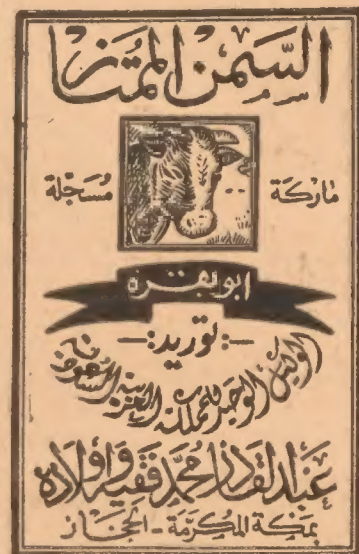 السَّمن الممتَاز
ماركة مُسَجلة
ابو بقرة
-: توريد :-
الوكيل الوحيد للمملكة العربية السعودية
عبد القادر محمد فقيه واولاده
بمكة المكرمة - الحجاز